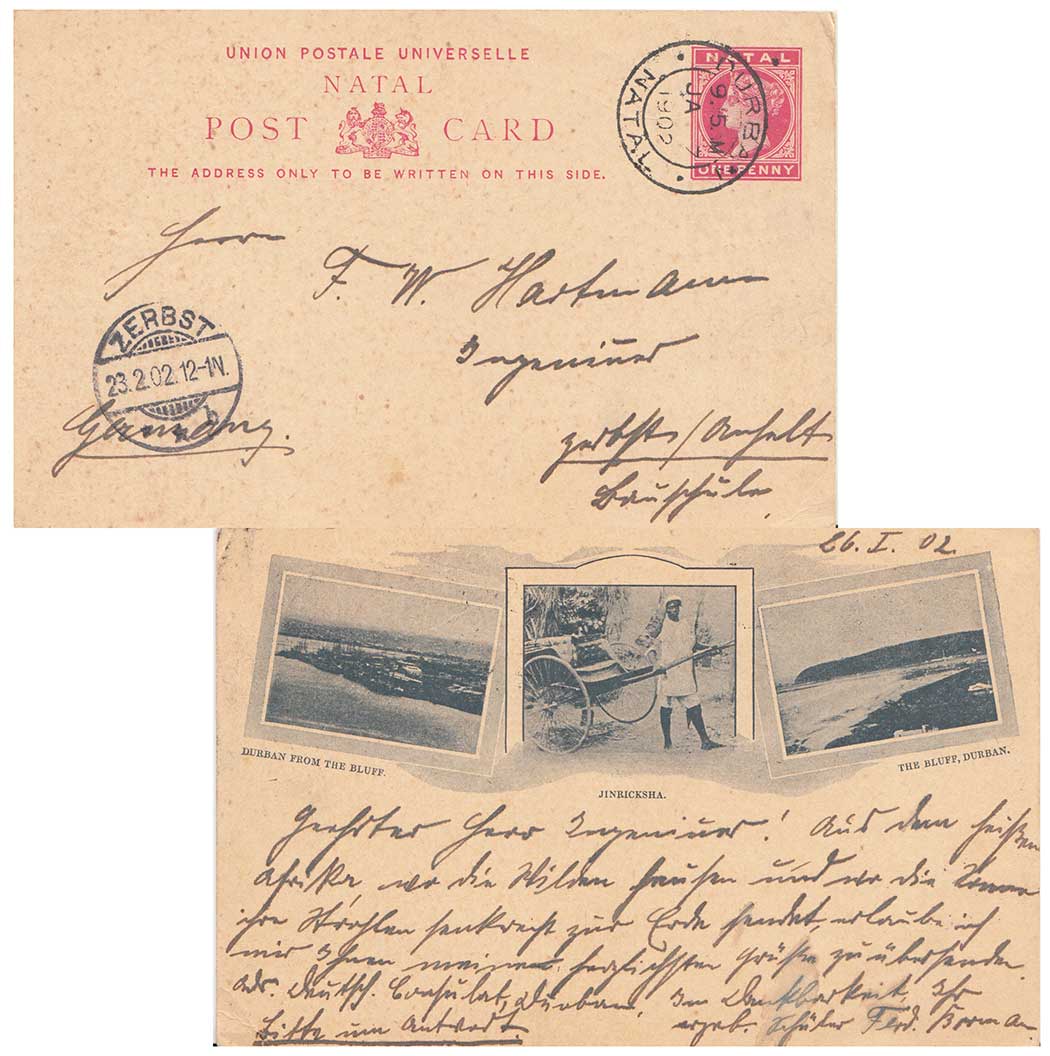 UNION POSTALE UNIVERSELLE
NATAL
POST CARD
THE ADDRESS ONLY TO BE WRITTEN ON THIS SIDE.
NATAL
ONE PENNY
DURBAN
JA
1902
NATAL
Herrn
F. W. Hartmann
Ingenieur
ZERBST
23.2.02.12-1N.
b
Germany.
Zerbst/Anhalt
Bauschule.
26. I. 02.
DURBAN FROM THE BLUFF.
JINRICKSHA.
THE BLUFF, DURBAN.
Geehrter Herr Ingenieur! Aus dem heißen
Afrika wo die Wilden hausen und wo die Sonne
ihre Strahlen senkrecht zur Erde sendet, erlaube ich
mir Ihnen meine herzlichsten Grüße zu übersenden.
Adr. Deutsch. Consulat, Durban. In Dankbarkeit, Ihr
Bitte um Antwort. ergeb. Schüler Ferd. Borman